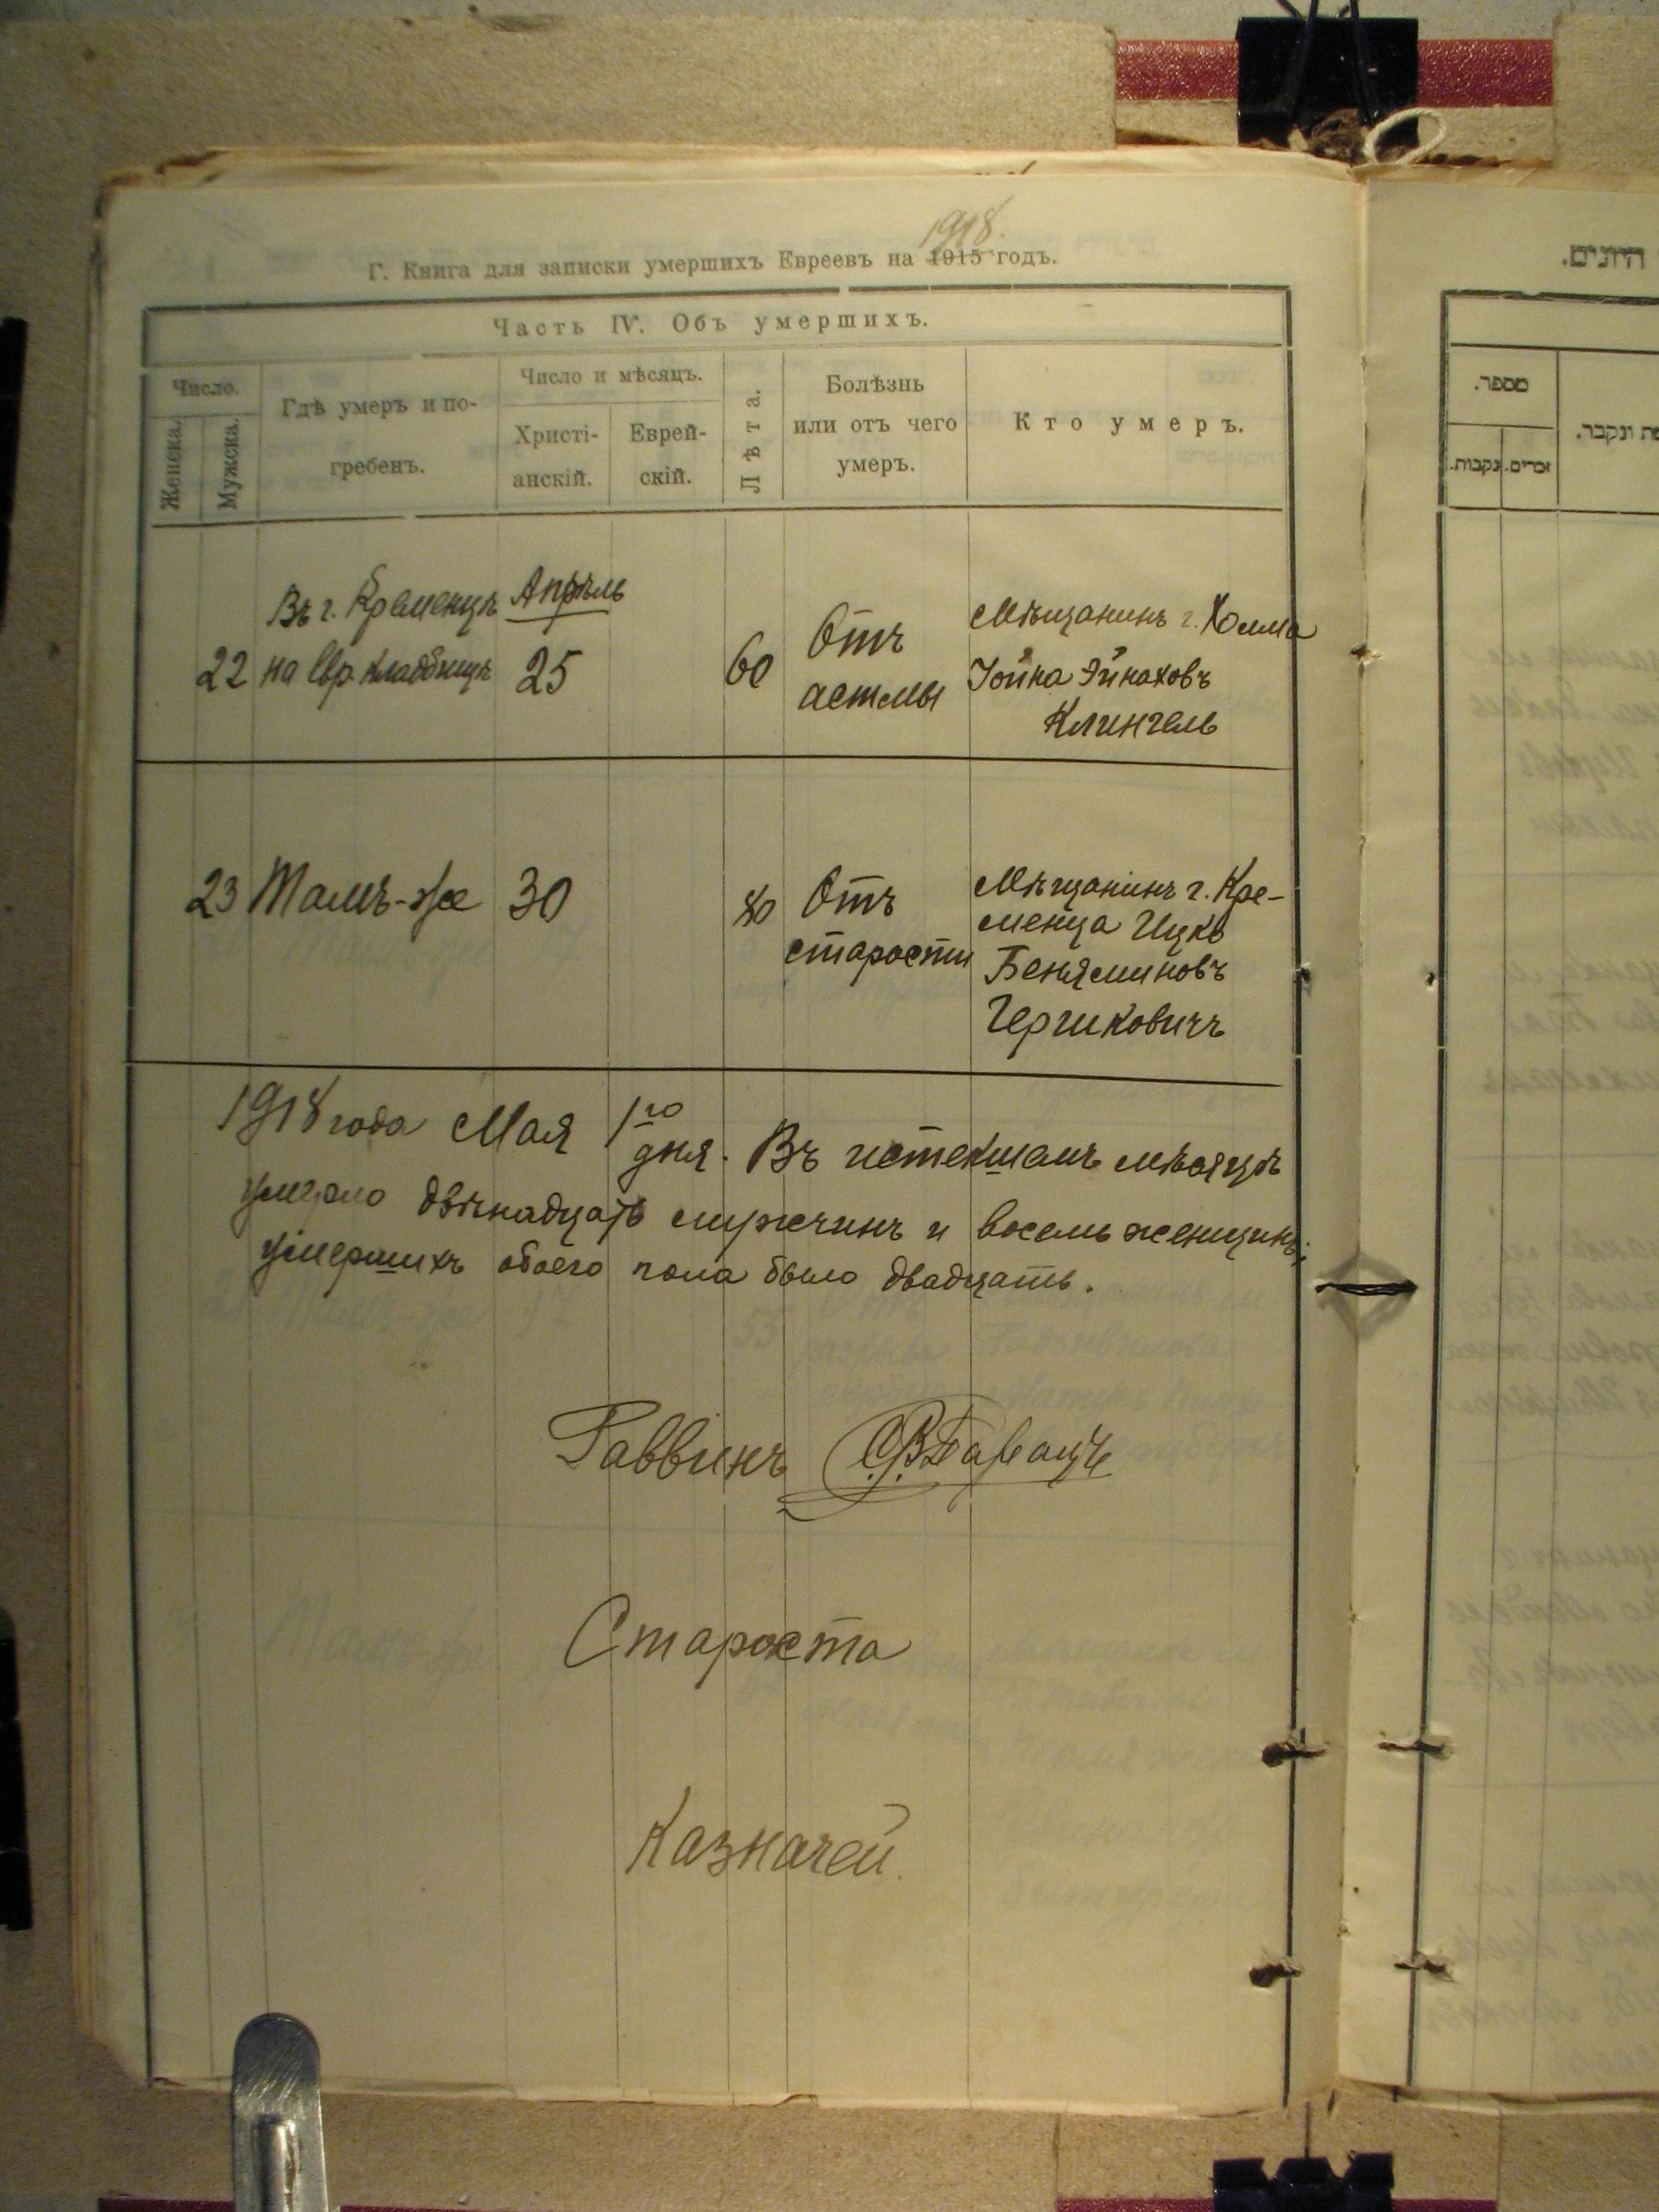 1918.
Г. Книга для записки умершихъ Евреевъ на 1915 годъ.
Часть IV. Объ умершихъ.
Число.
Женска.
Мужска.
Гдѣ умеръ и по-
гребенъ.
Число и мѣсяцъ.
Христі-
анскій.
Еврей-
скій.
Лѣта.
Болѣзнь
или отъ чего
умеръ.
Кто умеръ.
Въ г. Кременцѣ Апрѣль
22 на Евр. кладбищѣ 25 60 Отъ
астмы
Мѣщанинъ г. Холма
Іойна Эйнаховъ
Клингель
23 Тамъ-же 30 80 Отъ
старости
Мѣщанинъ г. Кре-
менца Ицко
Беняминовъ
Гершковичъ
1918 года Мая 1го дня. Въ истекшемъ мѣсяцѣ
умерло двѣнадцать мужчинъ и восемь женщинъ;
умершихъ обоего пола было двадцать.
Раввинъ
Староста
Казначей.
היונים.
מספר.
זכרים.
נקבות.
ונקבר.